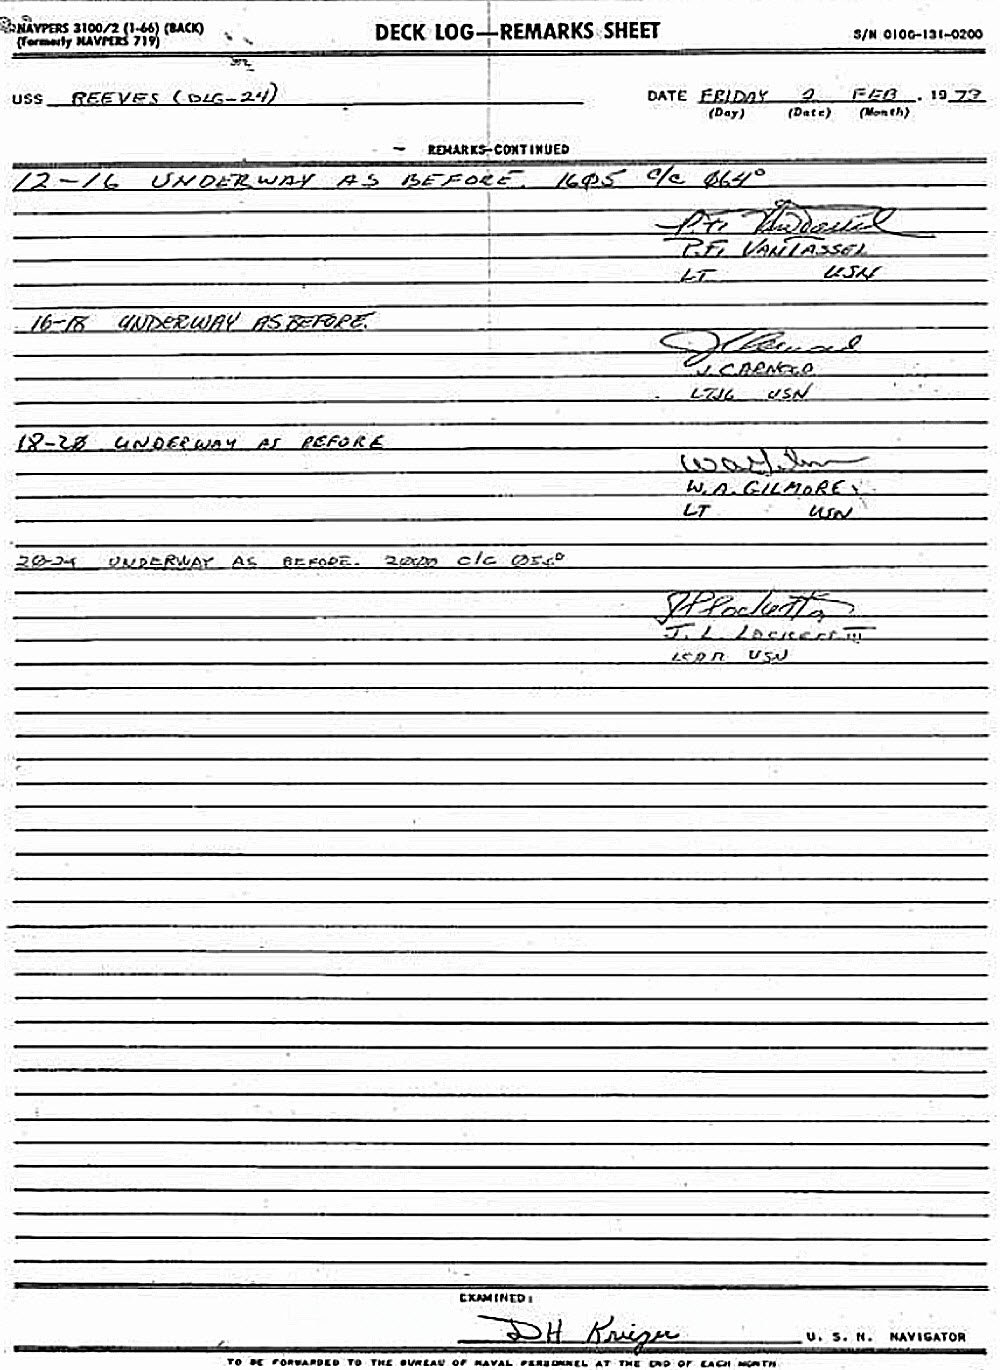 NAVPERS 3100/2 (1-66) (BACK)
(Formerly NAVPERS 719)
DECK LOG—REMARKS SHEET
S/N 0106-131-0200
USS REEVES (DLG-24)
DATE FRIDAY 2 FEB, 1973
(Day) (Date) (Month)
REMARKS-CONTINUED
12-16 UNDERWAY AS BEFORE. 16Ø5 c/c Ø64°
P.F. VANTASSEL
LT USN
16-18 UNDERWAY AS BEFORE.
J. C ARNOLD
LTJG USN
18-2Ø UNDERWAY AS BEFORE
W. A. GILMORE
LT USN
2Ø-24 UNDERWAY AS BEFORE. 2ØØØ c/c
J. L. LOCKETT III
LCDR USN
EXAMINED:
DH Krieger U. S. N. NAVIGATOR
TO BE FORWARDED TO THE BUREAU OF NAVAL PERSONNEL AT THE END OF EACH MONTH